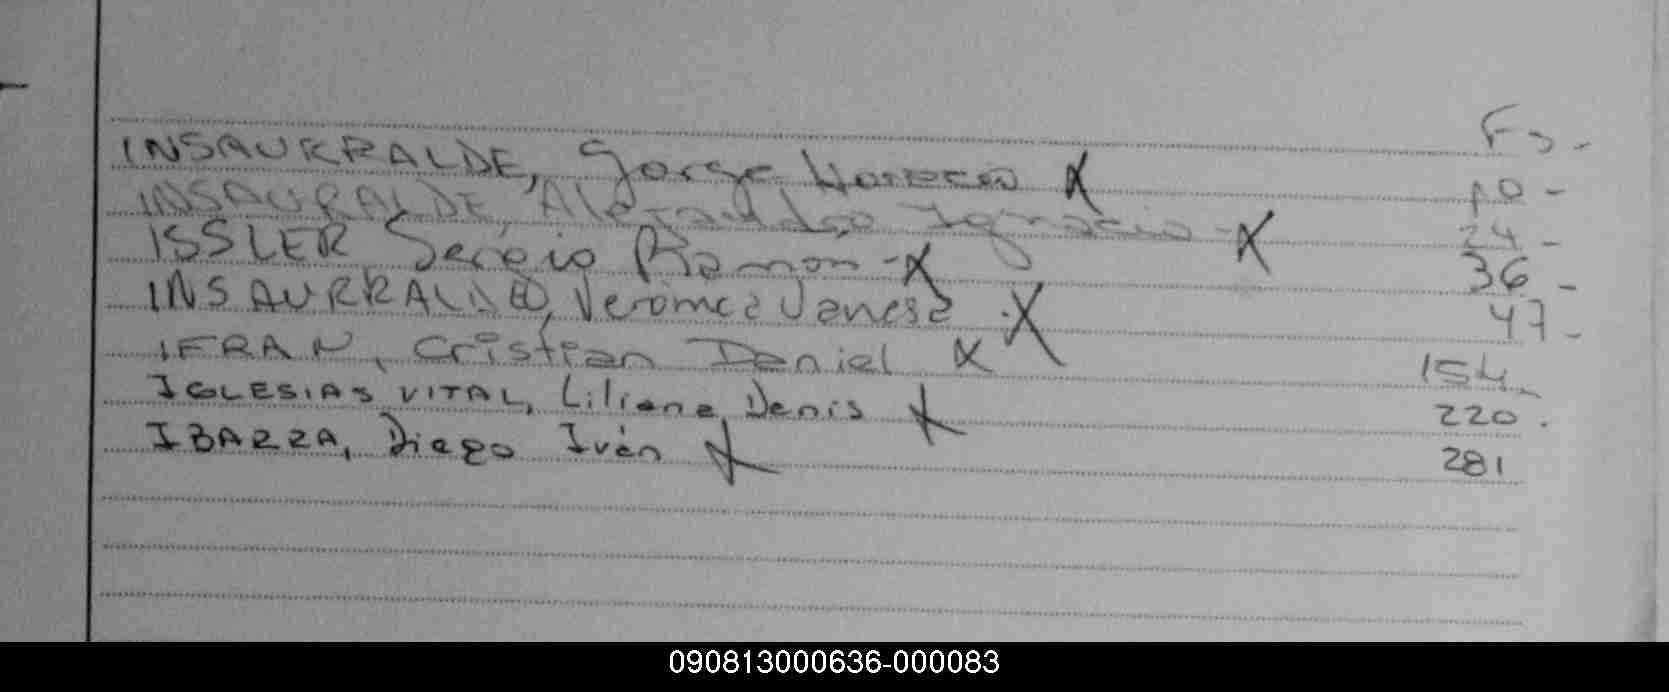 Fs.
INSAURRALDE, Jorge Horacio X 10-
INSAURALDE, Alejandro Ignacio-X 24-
ISSLER Sergio Ramón-X 36-
INSAURRALDE, Verónica Vanesa X 47-
IFRAN, Cristian Daniel X 154-
IGLESIAS VITAL, Liliana Denis X 220.
IBARRA, Diego Iván X 281
090813000636-000083